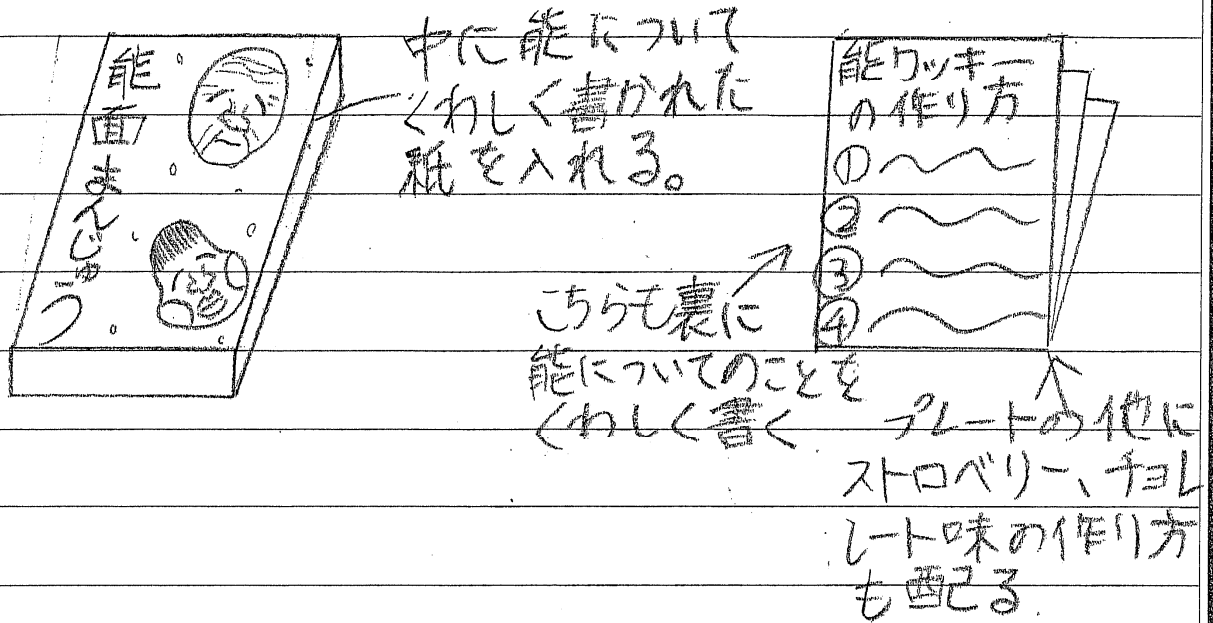 能面まんじゅう
中に能について
くわしく書かれた
紙を入れる。
能クッキー
の作り方
①
②
③
④
こちらも裏に
能についてのことを
くわしく書く
プレートの他に
ストロベリー、チョコ
レート味の作り方
も配る